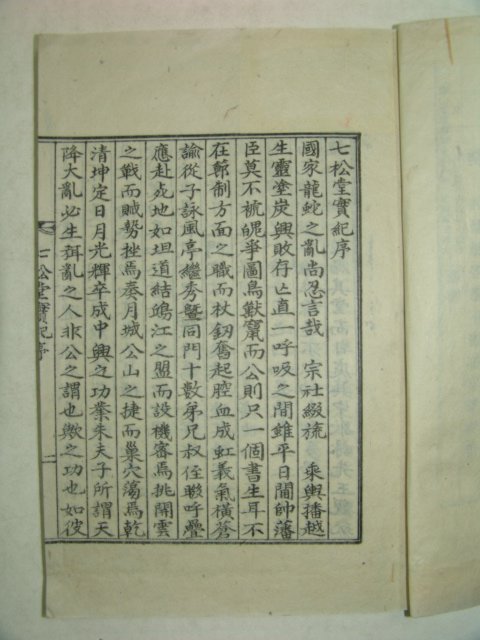 七松堂實紀序
國家龍蛇之亂尚忍言哉 宗社綴旒 乘輿播越
生靈塗炭興敗存亡直一呼吸之間雖平日閫帥藩
臣莫不褫魄爭圖鳥獸竄而公則只一個書生耳不
在節制方面之職而杖釰奮起腔血成虹義氣橫蒼
諭從子詠風亭繼秀曁同門十數弟兄叔侄聯呼疊
應赴死地如坦道結鴻江之盟而設機審焉挑開雲
之戰而賊勢挫焉奏月城公山之捷而巢穴蕩焉乾
清坤定日月光輝卒成中興之功業朱夫子所謂天
降大亂必生弭亂之人非公之謂也歟之功也如彼
七松堂實紀序
一